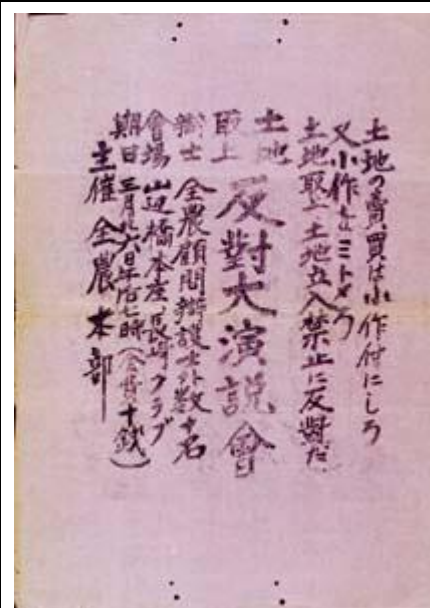 土地の賣買は小作付にしろ
又小作をミトメろ
土地取上土地立入禁止に反對だ
土地取上反對大演説會
辯士 全農顧問辯護士外数十名
會場 山辺橋本座 長崎クラブ
期日 三月 日午后七時(会費十銭)
主催 全農本部